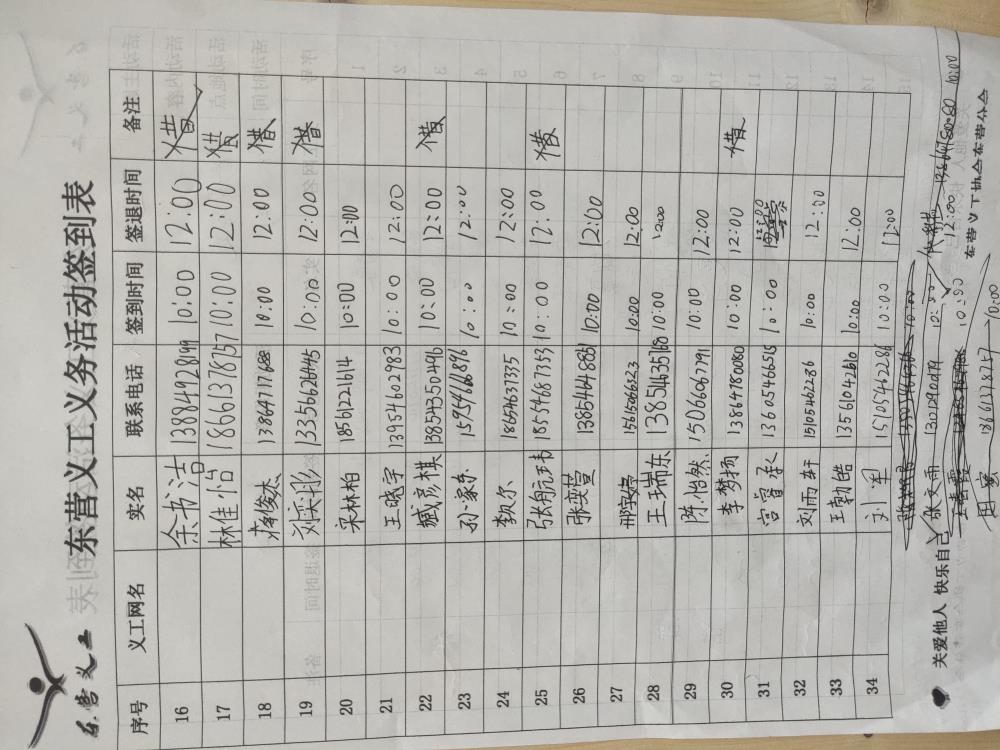 东营义工
东营义工义务活动签到表
序号 义工网名 实名 联系电话 签到时间 签退时间 备注
16 余书洁 13884928199 10:00 12:00 借
17 林佳怡 18661378757 10:00 12:00 借
18 蒋俊杰 13864717688 10:00 12:00 借
19 刘奕彤 13356626445 10:00 12:00 借
20 宋林柏 18512221614 10:00 12:00
21 王晓宇 13934602983 10:00 12:00
22 臧彦棋 13854350496 10:00 12:00 借
23 孙家东 15954668696 10:00 12:00
24 18654637335 10:00 12:00
25 张舟元玮 18554687353 10:00 12:00 借
26 张奕萱 13854648851 10:00 12:00
27 邢宇婷 15615066323 10:00 12:00
28 王瑞东 13854635768 10:00 12:00
29 陈怡然 15060667791 10:00 12:00
30 李梦扬 13864780080 10:00 12:00 借
31 宫睿承 13605466515 10:00 12:00
32 刘雨轩 15105462286 10:00 12:00
33 王勃皓 13561042610 10:00 12:00
34 刘军 15105462286 10:00 12:00
关爱他人 快乐自己 张文雨 10:00 12:00
10:00
18661378757 10:00